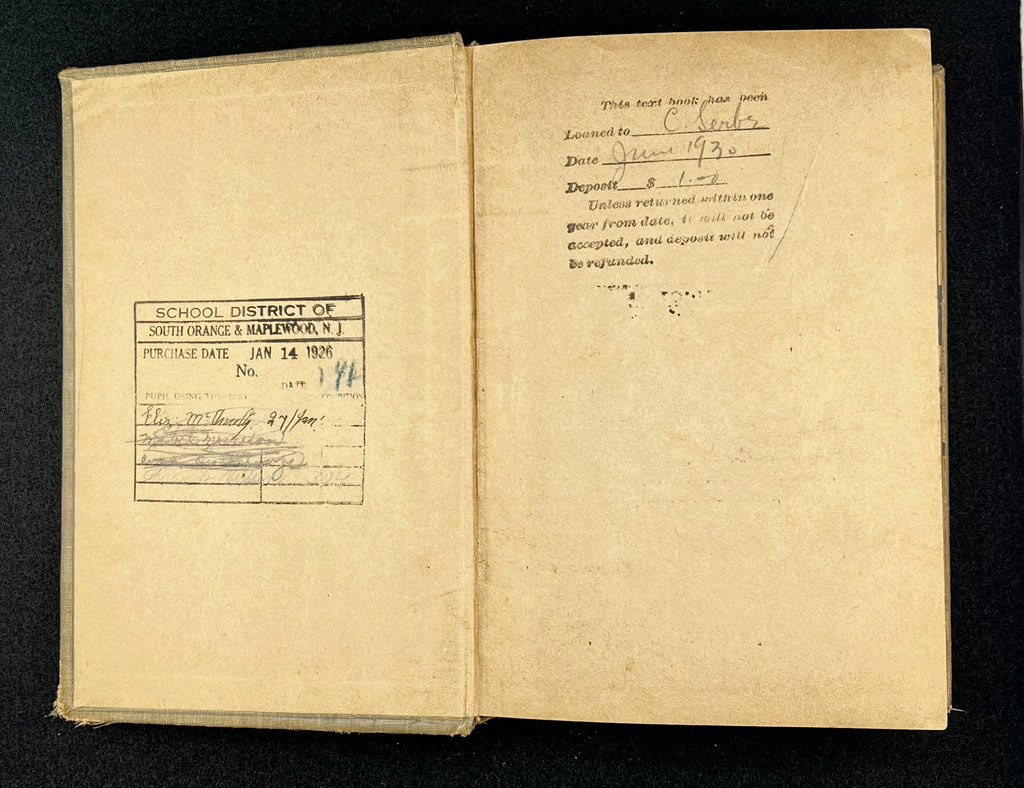 SCHOOL DISTRICT OF
SOUTH ORANGE & MAPLEWOOD, N. J.
PURCHASE DATE JAN 14 1926
No.
DATE
PUPIL USING CONDITION
Eliz. 27/Jan
This text book has been
Loaned to C.
Date June 1930
Deposit $ 1.00
Unless returned within one
year from date, it will not be
accepted, and deposit will not
be refunded.